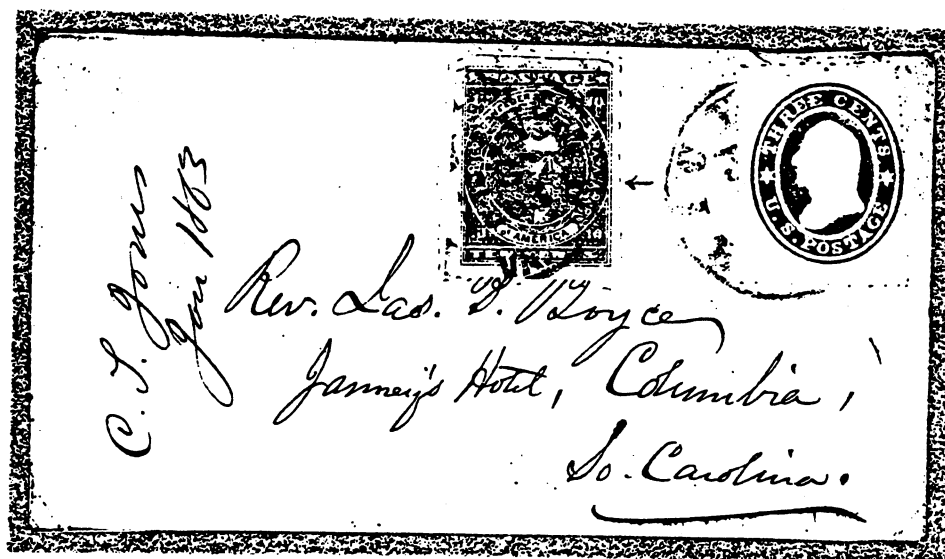 THREE CENTS
U. S. POSTAGE
POSTAGE
C. T. Jones
Jan 1863
Rev. Jas. P. Boyce
Janney's Hotel, Columbia,
So. Carolina.